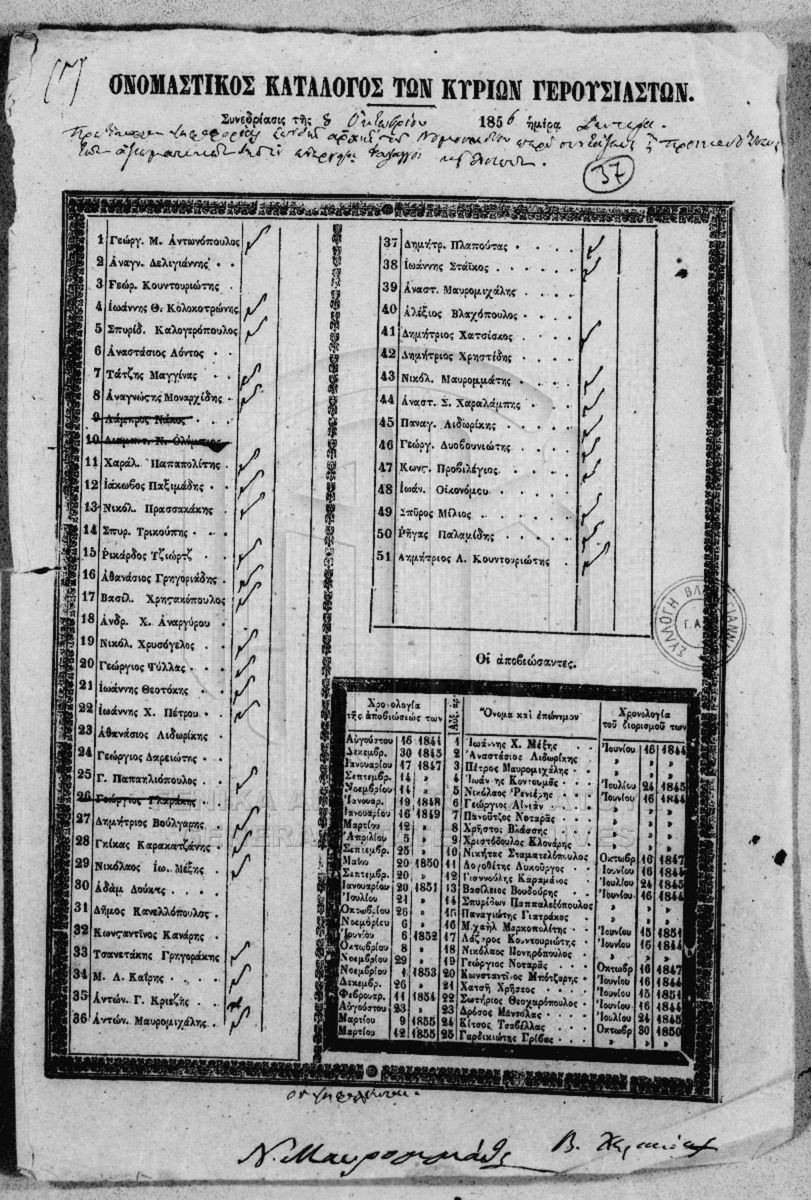 (17)
ΟΝΟΜΑΣΤΙΚΟΣ ΚΑΤΑΛΟΓΟΣ ΤΩΝ ΚΥΡΙΩΝ ΓΕΡΟΥΣΙΑΣΤΩΝ.
Συνεδρίασις τῆς 8 Ὀκτωβρίου 1856 ἡμέρα Δευτέρα.
37
1 Γεώργ. Μ. Αντωνόπουλος
2 Αναγν. Δελιγιάννης
3 Γεωρ. Κουντουριώτης
4 Ιωάννης Θ. Κολοκοτρώνης
5 Σπυρίδ. Καλογερόπουλος
6 Αναστάσιος Λόντος
7 Τάτζης Μαγγίνας
8 Αναγνώςης Μοναρχίδης
9 Λάμπρος Νάκος
10 Διαμαντ. Ν. Ολύμπιος
11 Χαράλ. Παπαπολίτης
12 Ιάκωβος Παξιμάδης
13 Νικόλ. Πρασσακάκης
14 Σπυρ. Τρικούπης
15 Ρικάρδος Τζιώρτζ
16 Αθανάσιος Γρηγοριάδης
17 Βασίλ. Χρηςακόπουλος
18 Ανδρ. Χ. Αναργύρου
19 Νικόλ. Χρυσόγελος
20 Γεώργιος Ψύλλας
21 Ιωάννης Θεοτόκης
22 Ιωάννης Χ. Πέτρου
23 Αθανάσιος Λιδωρίκης
24 Γεώργιος Δαρειώτης
25 Γ. Παπαηλιόπουλος
26 Γεώργιος Γλαράκης
27 Δημήτριος Βούλγαρης
28 Γκίκας Καρακατζάνης
29 Νικόλαος Ιω. Μέξης
30 Αδάμ Δούκας
31 Δῆμος Κανελλόπουλος
32 Κωνςαντῖνος Κανάρης
33 Τσανετάκης Γρηγοράκης
34 Μ. Λ. Καΐρης
35 Αντών. Γ. Κριεζῆς
36 Αντών. Μαυρομιχάλης
37 Δημήτρ. Πλαπούτας
38 Ιωάννης Στάϊκος
39 Αναστ. Μαυρομιχάλης
40 Αλέξιος Βλαχόπουλος
41 Δημήτριος Χατσίσκος
42 Δημήτριος Χρηςίδης
43 Νικόλ. Μαυρομμάτης
44 Αναστ. Σ. Χαραλάμπης
45 Παναγ. Λιδωρίκης
46 Γεώργ. Δυοβουνιώτης
47 Κωνς. Προβιλέγιος
48 Ιωάν. Οἰκονόμου
49 Σπῦρος Μίλιος
50 Ρήγας Παλαμίδης
51 Δημήτριος Λ. Κουντουριώτης
ΣΥΛΛΟΓΗ ΒΛΑΧΟΓΙΑΝΝ
Γ.Α.
Οἱ ἀποβιώσαντες.
Χρονολογία τῆς ἀποβιώσεώς των | Αὐξ. ἀρ. | Ὄνομα καὶ ἐπώνυμον | Χρονολογία τοῦ διορισμοῦ των
Αὐγούστου 16 1844 1 Ἰωάννης Χ. Μέξης Ἰουνίου 16 1844
Δεκεμβρ. 30 1845 2 Ἀναστάσιος Λιδωρίκης » »
Ἰανουαρίου 17 1847 3 Πέτρος Μαυρομιχάλης » »
Σεπτεμβρ. 14 » 4 Ἰωάννης Κοντουμᾶς Ἰουλίου 24 1845
Νοεμβρίου 14 » 5 Νικόλαος Ῥενιέρης Ἰουνίου 16 1844
Ἰανουαρ. 19 1848 6 Γεώργιος Αἰνιάν » »
Ἰανουαρίου 16 1849 7 Πανοῦτζος Νοταρᾶς » »
Μαρτίου 12 » 8 Χρῆστος Βλάσσης » »
Ἀπριλίου 5 » 9 Χριστόδουλος Κλονάρης » »
Σεπτεμβρ. 25 » 10 Νικήτας Σταματελόπουλος Ὀκτωβρ 16 1847
Μαΐου 20 1850 11 Λογοθέτης Λυκοῦργος Ἰουνίου 16 1844
Σεπτεμβρ. 20 » 12 Γιαννούλης Καραμάνος Ἰουλίου 24 1845
Ἰανουαρίου 20 1851 13 Βασίλειος Βουδούρης Ἰουνίου 16 1844
Ἰουλίου 21 » 14 Σπυρίδων Παππαλεξόπουλος » »
Ὀκτωβρίου 26 » 15 Παναγιώτης Γιατράκος » »
Νοεμβρίου 6 » 16 Μιχαὴλ Μαρκοπολίτης Ἰουνίου 15 1851
Ἰουνίου 6 1852 17 Λάζαρος Κουντουριώτης Ἰουνίου 16 1844
Ὀκτωβρίου 8 » 18 Νικόλαος Πονηρόπουλος » »
Νοεμβρίου 29 » 19 Γεώργιος Νοταρᾶς Ὀκτωβρ 16 1847
Νοεμβρίου 1 1853 20 Κωνσταντῖνος Μπότζαρης Ἰουνίου 16 1844
Δεκεμβρ. 26 » 21 Χατσῆ Χρῆςος Ἰουνίου 15 1851
Φεβρουαρ. 11 1854 22 Σωτήριος Θεοχαρόπουλος Ἰουνίου 16 1844
Αὐγούστου 23 » 23 Δρόσος Μανσόλας Ἰουλίου 24 1845
Μαρτίου 9 1855 24 Κίτσος Τσαβέλλας Ὀκτωβρ 30 1850
Μαρτίου 12 1855 25 Γαρδικιώτης Γρίβας » »
Ν. Μαυρομμάτης